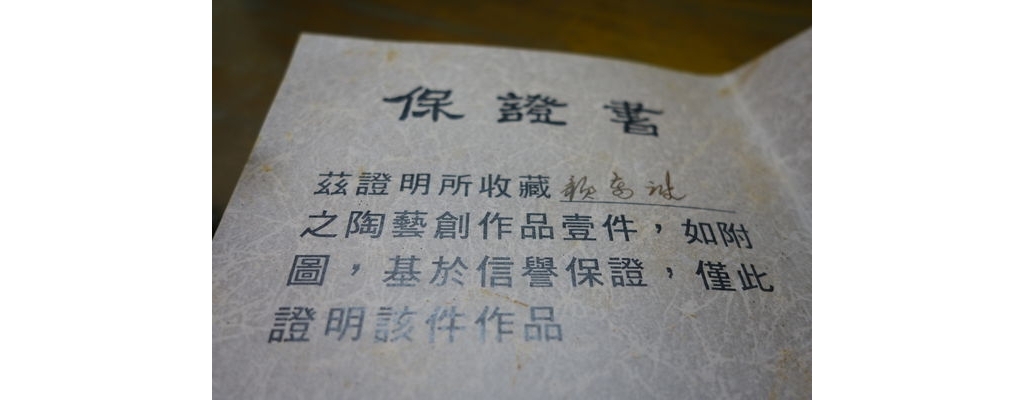 保證書
茲證明所收藏
之陶藝創作品壹件，如附
圖，基於信譽保證，僅此
證明該件作品